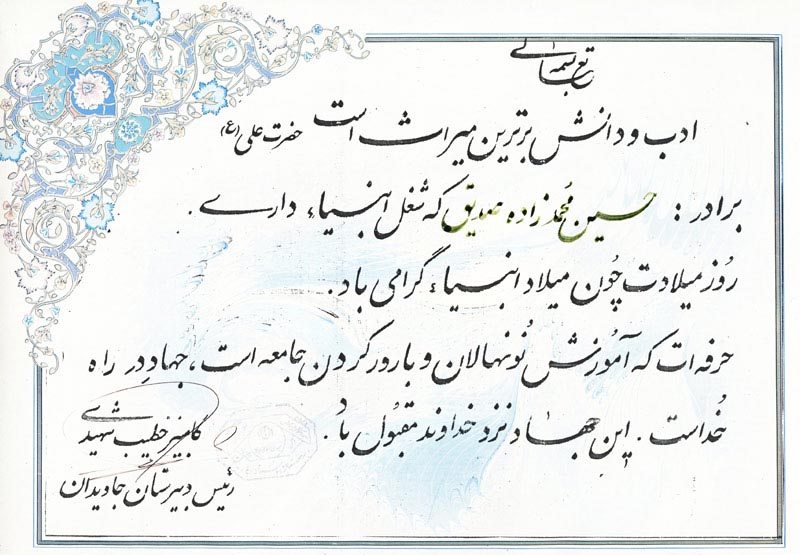 بسمه تعالی
ادب و دانش برترین میراث است حضرت علی (ع)
برادر : حسین محمدزاده صدیق که شغل انبیاء داری .
رُوز میلادت چُون میلاد انبیاء گرامی باد .
حرفه ات که آمُوزش نُونهالان و بارور کردن جامعه است ، جهاد در راه
خُداست . این جهاد نزد خداوند مقبُول باد .
کامبیز خطیب شهیدی
رئیس دبیرستان جاویدان